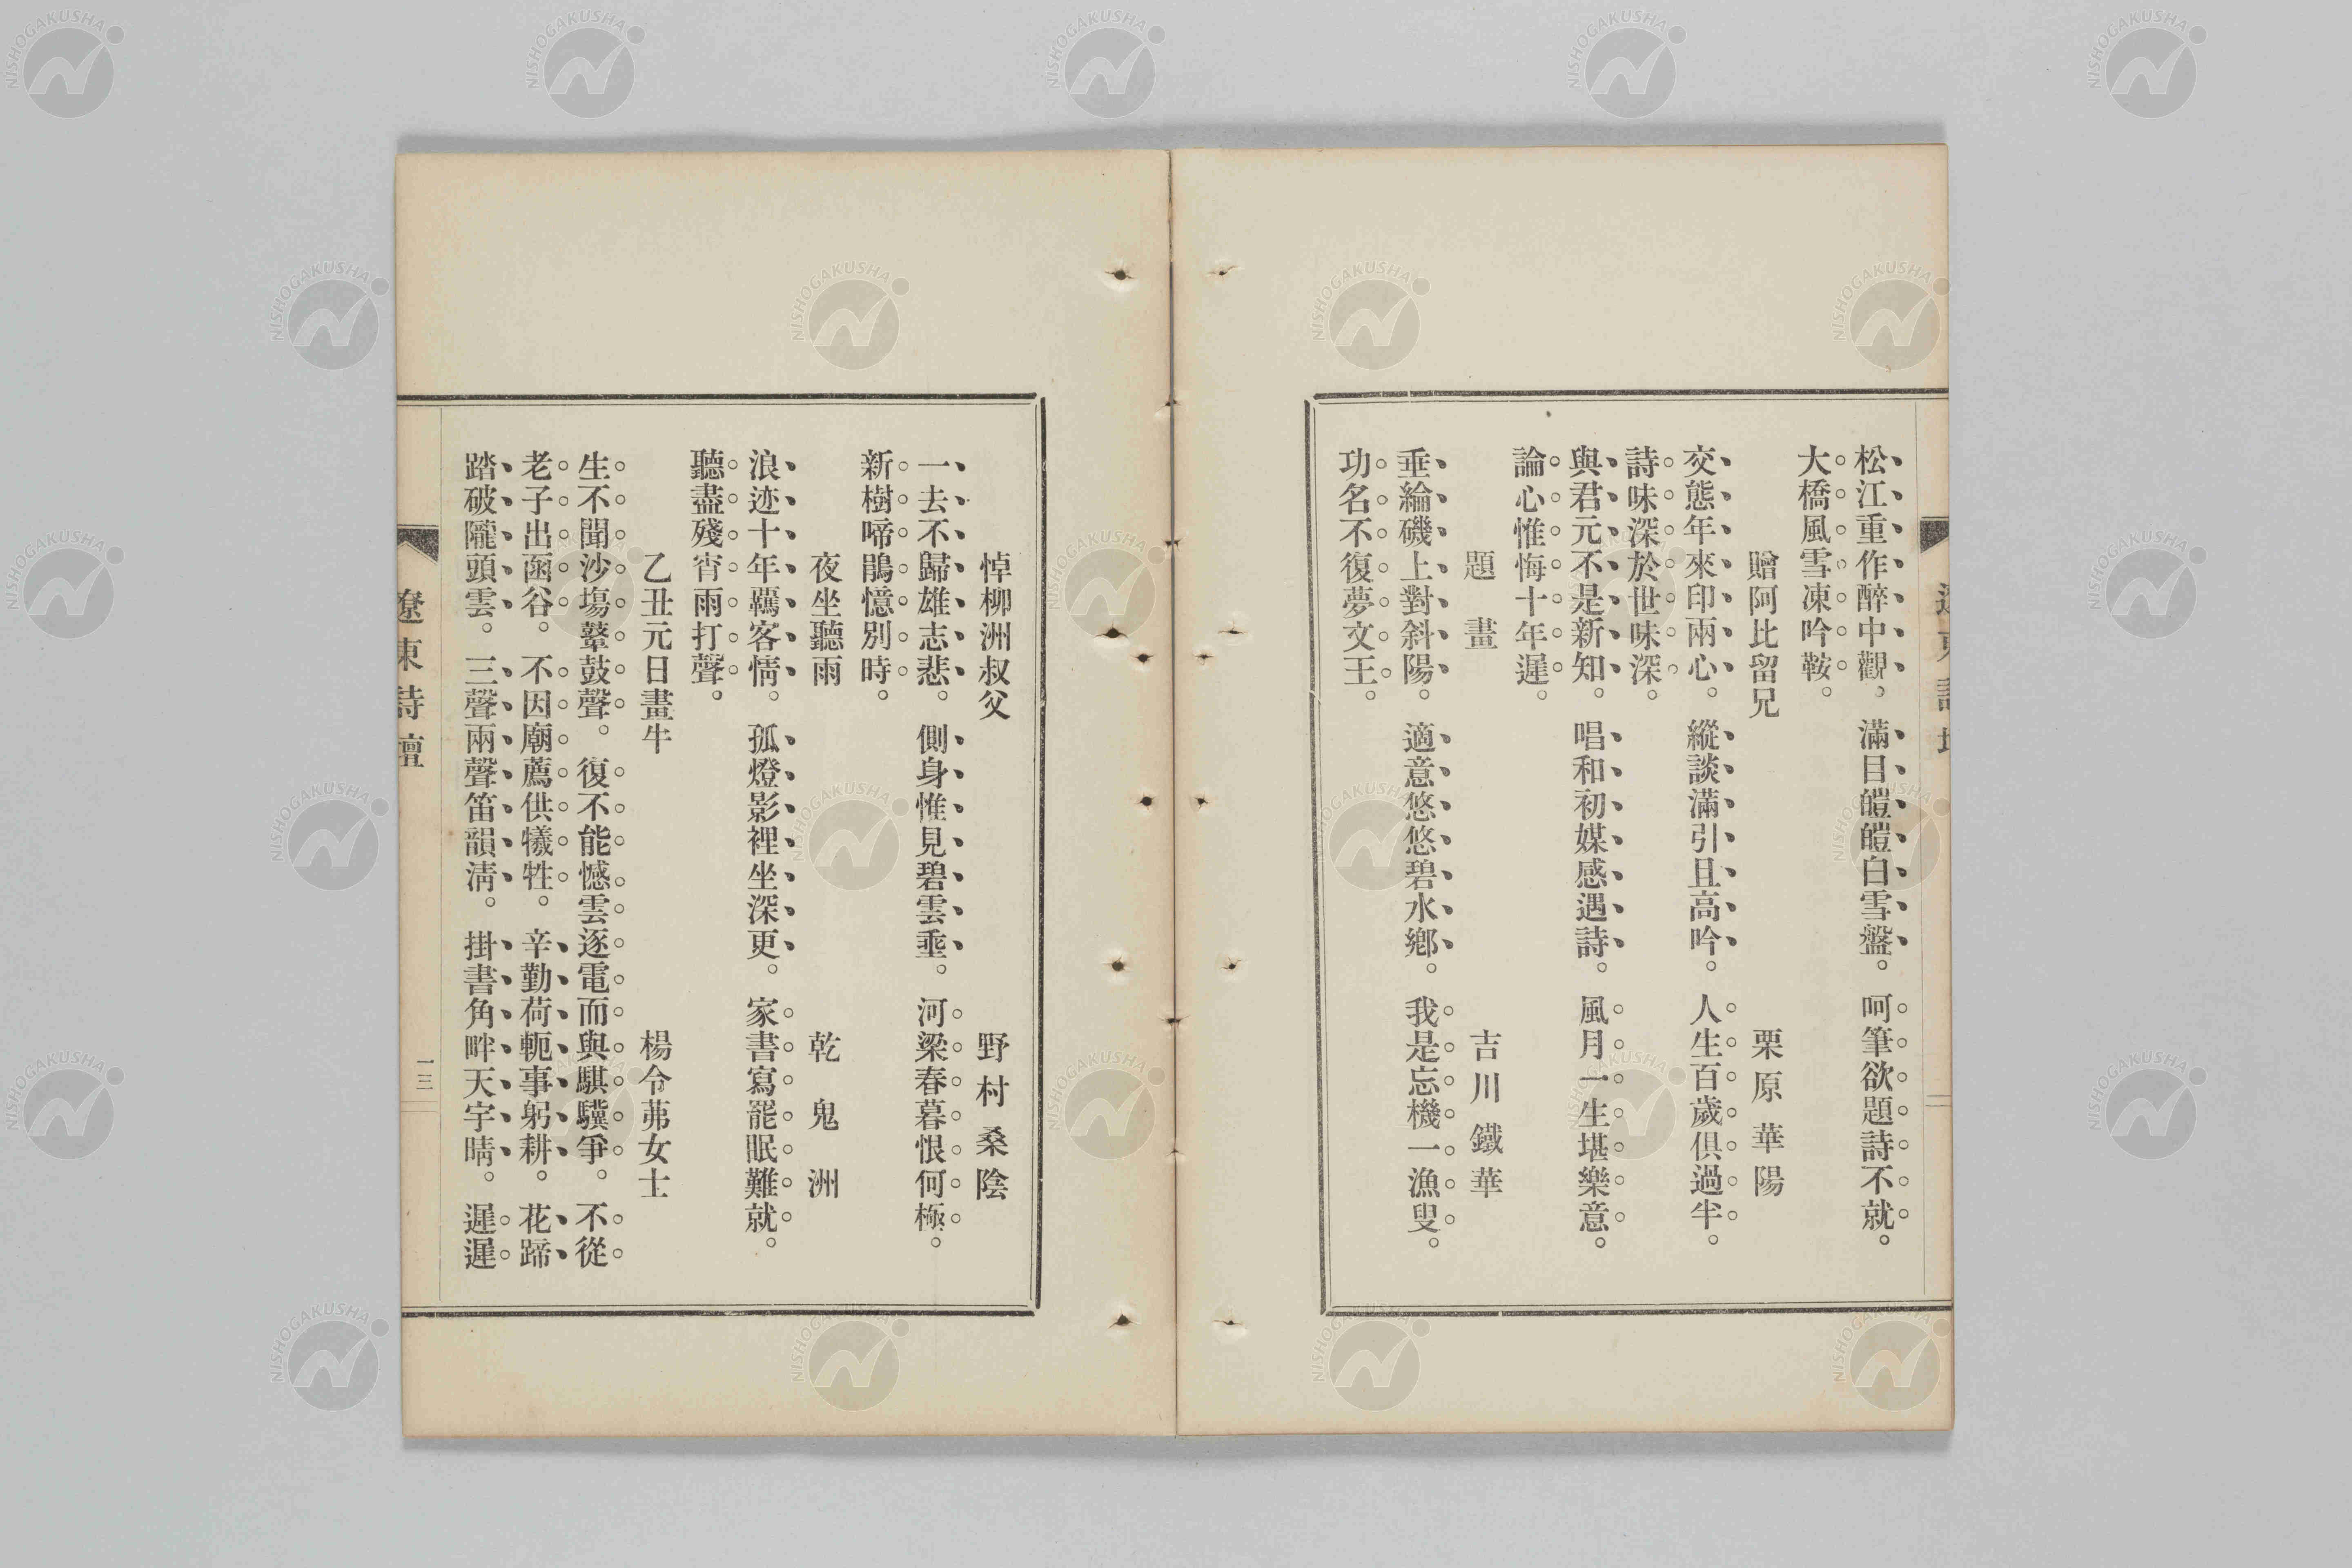 松江重作醉中觀。滿目皚皚白雪盤。呵筆欲題詩不就。
大橋風雪凍吟鞍。
贈阿比留兄 栗原華陽
交態年來印兩心。縱談滿引且高吟。人生百歲俱過半。
詩味深於世味深。
與君元不是新知。唱和初媒感遇詩。風月一生堪樂意。
論心惟悔十年遲。
題畫 吉川鐵華
垂綸磯上對斜陽。適意悠悠碧水鄉。我是忘機一漁叟。
功名不復夢文王。
悼柳洲叔父 野村桑陰
一去不歸雄志悲。側身惟見碧雲垂。河梁春暮恨何極。
新樹啼鵑憶別時。
夜坐聽雨 乾鬼洲
浪迹十年羈客情。孤燈影裡坐深更。家書寫罷眠難就。
聽盡殘宵雨打聲。
乙丑元日畫牛 楊令茀女士
生不聞沙塲鼙鼓聲。復不能憾雲逐電而與騏驥爭。不從
老子出函谷。不因廟薦供犧牲。辛勤荷軛事躬耕。花蹄
踏破隴頭雲。三聲兩聲笛韻淸。掛書角畔天宇晴。遲遲
遼東詩壇
一三
NISHOGAKUSHA